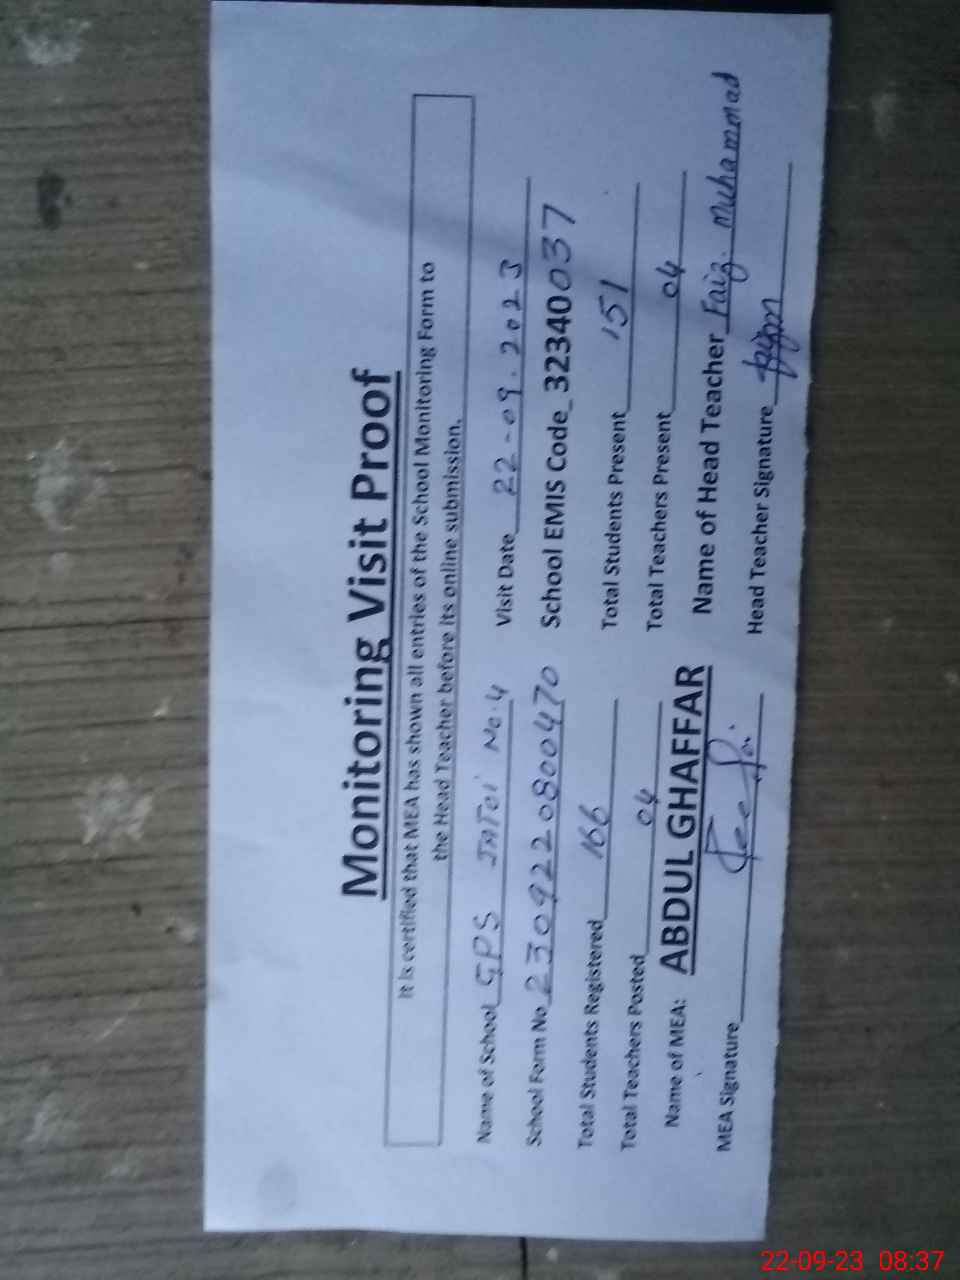 Monitoring Visit Proof
It is certified that MEA has shown all entries of the School Monitoring Form to
the Head Teacher before its online submission.
Name of School GPS JATOI No.4 Visit Date 22-09.2023
School Form No 230922080047​0 School EMIS Code 32340037
Total Students Registered 166 Total Students Present 151
Total Teachers Posted 04 Total Teachers Present 04
Name of MEA: ABDUL GHAFFAR Name of Head Teacher Faiz Muhammad
MEA Signature Head Teacher Signature
22-09-23 08:37